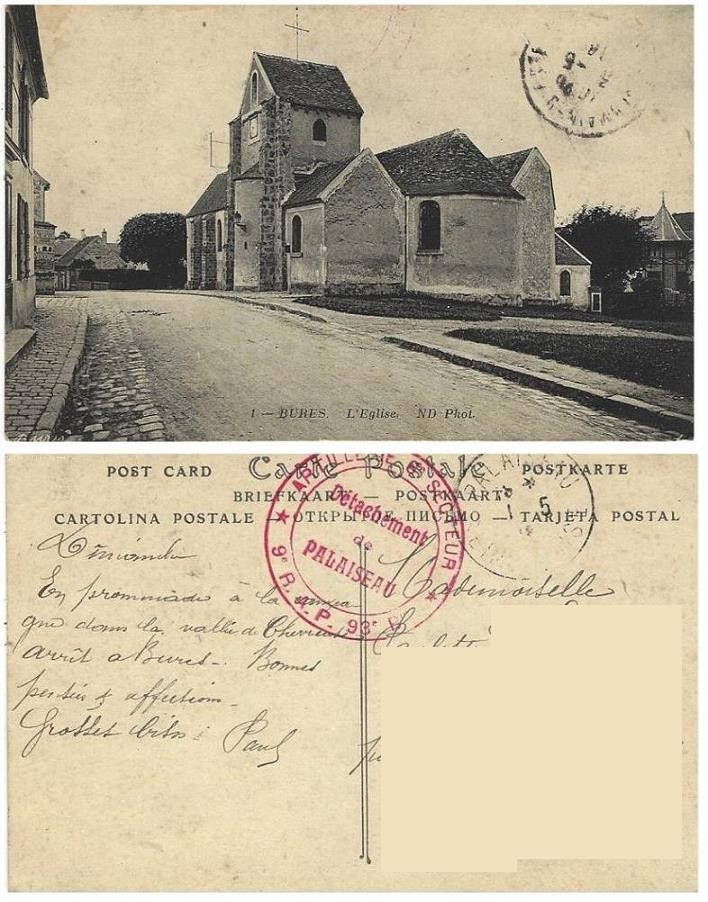 1 — BURES. L'Eglise. ND Phot.
POST CARD Carte Postale POSTKARTE
BRIEFKAART — POSTKAART
CARTOLINA POSTALE — ОТКРЫТОЕ ПИСЬМО — TARJETA POSTAL
ARTILLERIE SECTEUR
Détachement
de
PALAISEAU
9e R. A. P. - 93e
PALAISEAU
1 5
Dimanche
En promenade à la
que dans la vallée de Chevreuse
arrêt a Bures. Bonnes
pensées & affections
Grosses bises Paul
Mademoiselle